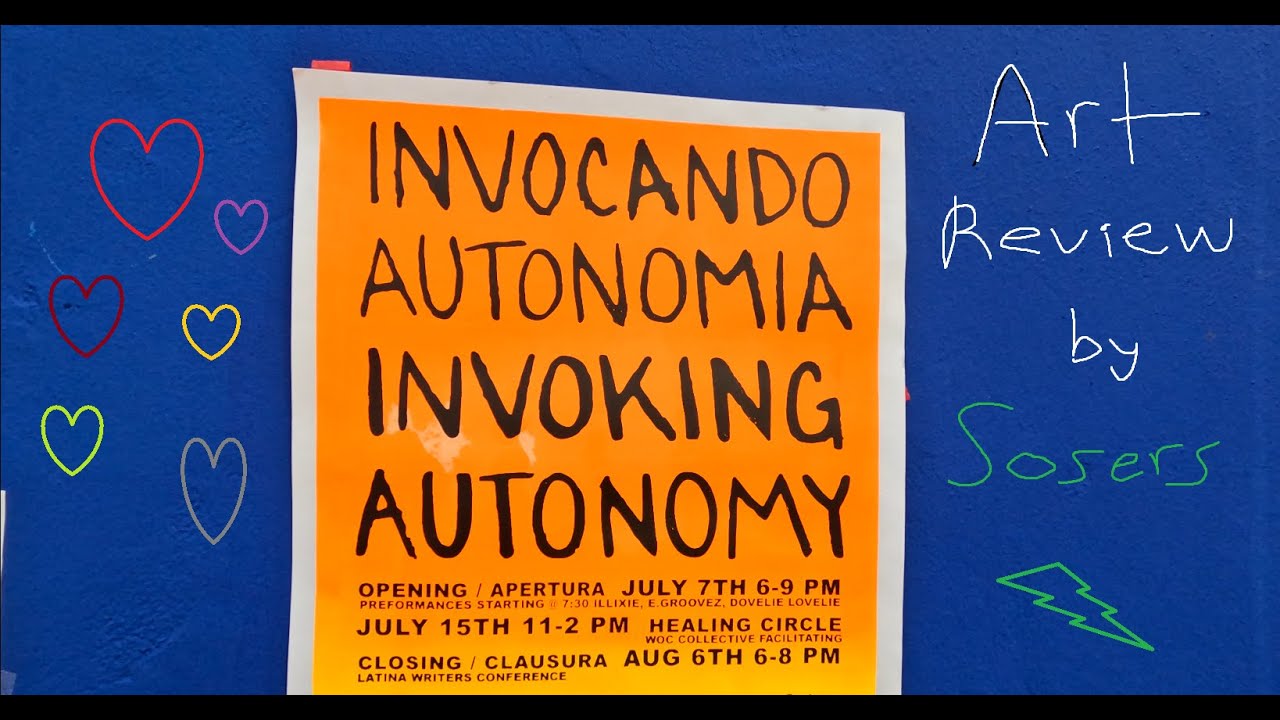 INVOCANDO
AUTONOMIA
INVOKING
AUTONOMY
OPENING / APERTURA JULY 7TH 6-9 PM
PREFORMANCES STARTING @ 7:30 ILLIXIE, E.GROOVEZ, DOVELIE LOVELIE
JULY 15TH 11-2 PM HEALING CIRCLE
WOC COLLECTIVE FACILITATING
CLOSING / CLAUSURA AUG 6TH 6-8 PM
LATINA WRITERS CONFERENCE
Art
Review
by
Sosers